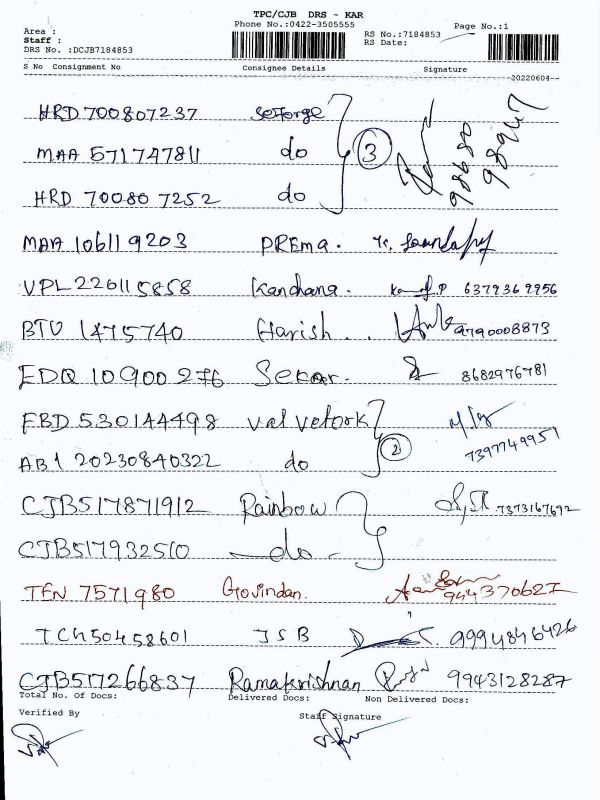 TPC/CJB DRS - KAR
Phone No.:0422-3505555
Area :
Staff :
DRS No. :DCJB7184853
RS No.:7184853
RS Date:
Page No.:1
S No Consignment No Consignee Details Signature
20220604
HRD 700807237
MAA 571747811 do 3
HRD 700807252 do
98680
98947
MAA 106119203 PREMA.
VPL 226115858 Kandhana. 6379369956
BTU 1475740 Harish . . 9790008873
EDQ 10900276 Sekar. 8682976781
FBD 530144498 val vetork
AB1 20230840322 do 2 7397749951
CJB517871912 Rainbow 7373167692
CJB517932510 do
TEN 7571980 Govindan. 944370627
TCH50458601 JSB 9994846426
CJB517266837 Ramakrishnan 9943128287
Total No. Of Docs: Delivered Docs: Non Delivered Docs:
Verified By Staff Signature